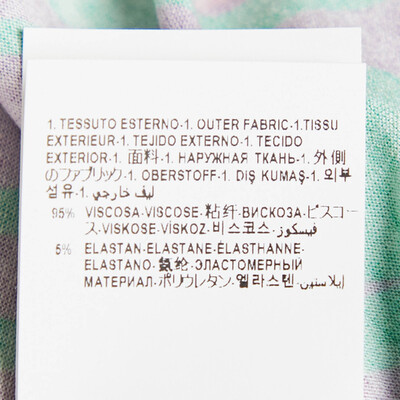 1. TESSUTO ESTERNO-1. OUTER FABRIC-1.TISSU
EXTERIEUR-1. TEJIDO EXTERNO-1. TECIDO
EXTERIOR-1. 面料-1. НАРУЖНАЯ ТКАНЬ-1. 外側
のファブリック-1. OBERSTOFF-1. DIŞ KUMAŞ-1. 외부
섬유-1. ليف خارجي
95% VISCOSA-VISCOSE-粘纤-ВИСКОЗА-ビスコー
ス-VISKOSE-VİSKOZ-비스코스-فيسكوز
5% ELASTAN-ELASTANE-ÉLASTHANNE-
ELASTANO-氨纶-ЭЛАСТОМЕРНЫЙ
МАТЕРИАЛ-ポリウレタン-엘라스텐-إيلاستين